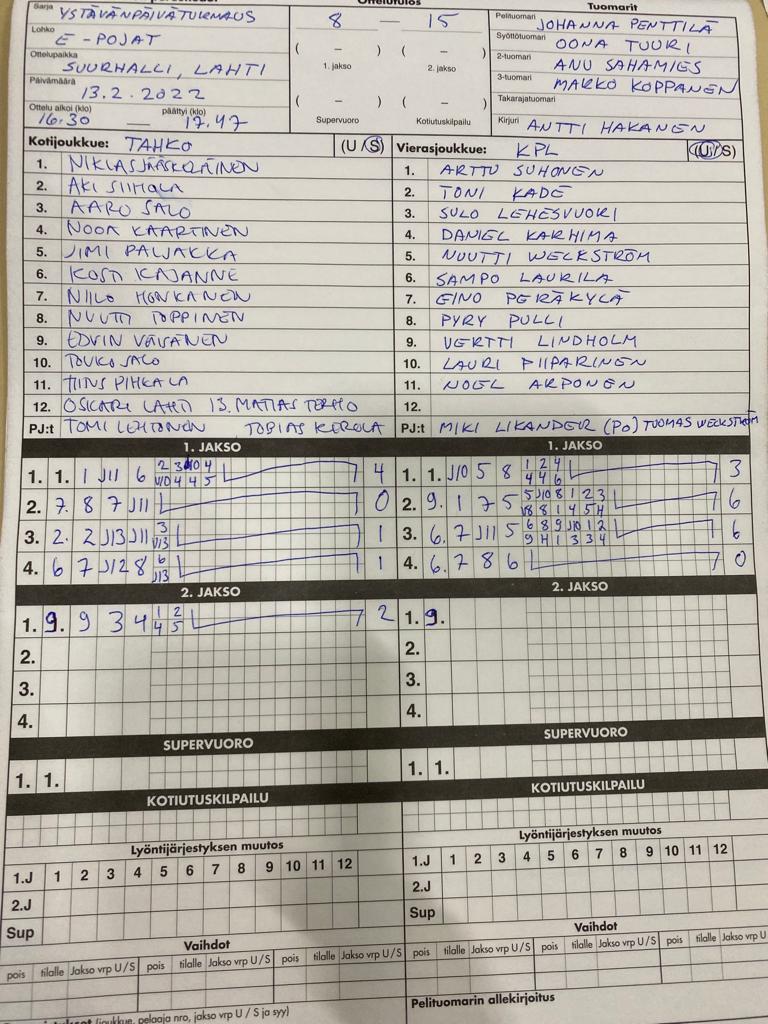 Sarja YSTÄVÄNPÄIVÄTURNAUS
Lohko E-POJAT
Ottelupaikka SUURHALLI, LAHTI
Päivämäärä 13.2.2022
Ottelu alkoi (klo) 16.30 — päättyi (klo) 17.47
Ottelutulos
8 – 15
( – ) ( – )
1. jakso 2. jakso
( – ) ( – )
Supervuoro Kotiutuskilpailu
Tuomarit
Pelituomari JOHANNA PENTTILÄ
Syöttötuomari OONA TUURI
2-tuomari ANU SAHAMIES
3-tuomari MARKO KOPPANEN
Takarajatuomari
Kirjuri ANTTI HAKANEN
Kotijoukkue: TAHKO (U/S)
1. NIKLAS JÄÄSKELÄINEN
2. AKI SIIHOLA
3. AARO SALO
4. NOOA KAARTINEN
5. JIMI PALJAKKA
6. KOSTI KAJANNE
7. NIILO HONKANEN
8. NUUTTI TOPPINEN
9. EDVIN VÄISÄNEN
10. TOUKO SALO
11. PIHKALA
12. OSKARI LAHTI 13. MATIAS TERHO
PJ:t TOMI LEHTONEN TOBIAS KEROLA
Vierasjoukkue: KPL (U/S)
1. ARTTU SUHONEN
2. TONI KADE
3. SULO LEHESVUORI
4. DANIEL KARHIMA
5. NUUTTI WECKSTRÖM
6. SAMPO LAURILA
7. EINO PERÄKYLÄ
8. PYRY PULLI
9. VERTTI LINDHOLM
10. LAURI PIIPARINEN
11. NOEL ARPONEN
12.
PJ:t MIKI LIKANDER (PO) TUOMAS WECKSTRÖM
1. JAKSO
1. 1. 1 J11 6 4
2. 7. 8 7 J11 0
3. 2. 2 J13 J11 3 1
4. 6 7 J12 8 6 J13 1
2. JAKSO
1. 9. 9 3 4 1 2 4 5 2
2.
3.
4.
SUPERVUORO
1. 1.
KOTIUTUSKILPAILU
Lyöntijärjestyksen muutos
1.J 1 2 3 4 5 6 7 8 9 10 11 12
2.J
Sup
Vaihdot
pois tilalle Jakso vrp U/S pois tilalle Jakso vrp U/S pois tilalle Jakso vrp U/S
(joukkue, pelaaja nro, jakso vrp U/S ja syy)
1. JAKSO
1. 1. J10 5 8 1 2 4 4 4 6 3
2. 9. 1 7 5 6
3. 6. 7 J11 5 6
4. 6. 7 8 6 0
2. JAKSO
1. 9.
2.
3.
4.
SUPERVUORO
1. 1.
KOTIUTUSKILPAILU
Lyöntijärjestyksen muutos
1.J 1 2 3 4 5 6 7 8 9 10 11 12
2.J
Sup
Vaihdot
pois tilalle Jakso vrp U/S pois tilalle Jakso vrp U/S pois tilalle Jakso vrp U
Pelituomarin allekirjoitus